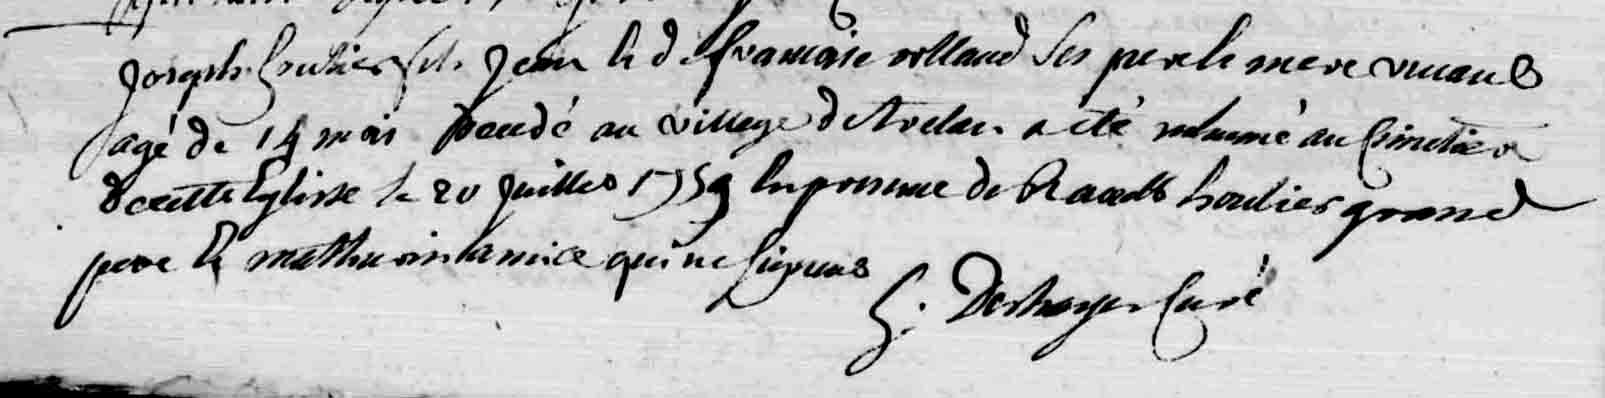 Joseph houlier fils Jean et de francoise rolland ses pere et mere vivans
agé de 14 mois decedé au village de a eté inhumé au Cimetiere
de cette Eglisse le 20 juillet 1759 En presence de houlier grand
pere et mathurin amice qui ne signent
Deshayes Curé